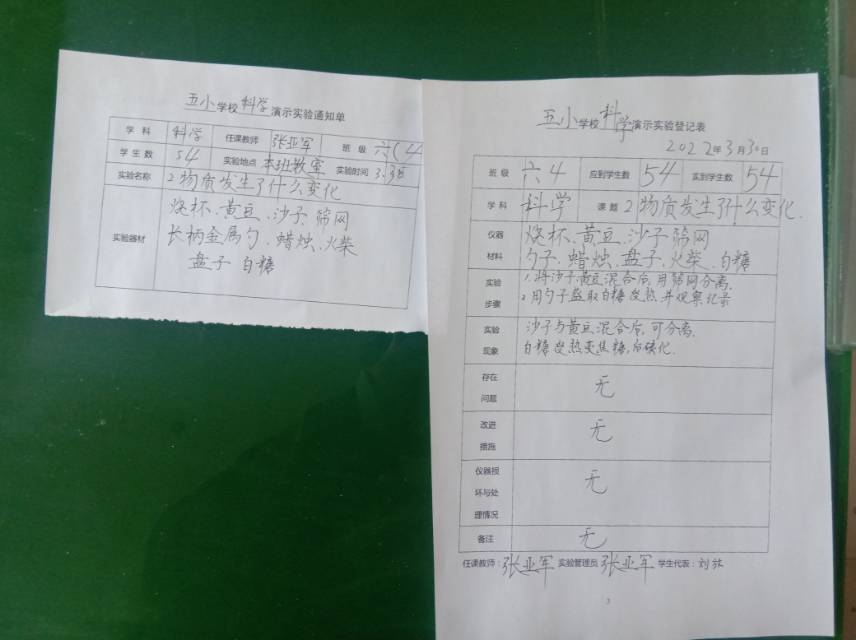 五小学校科学演示实验通知单
学科 科学 任课教师 张亚军 班级 六(4
学生数 54 实验地点 本班教室 实验时间 3.3
实验名称 2物质发生了什么变化
实验器材 烧杯、黄豆、沙子、筛网
长柄金属勺、蜡烛、火柴
盘子 白糖
五小学校科学演示实验登记表
2022年3月30日
班级 六4 应到学生数 54 实到学生数 54
学科 科学 课题 2物质发生了什么变化.
仪器材料 烧杯、黄豆、沙子 筛网
勺子、蜡烛、盘子、火柴、白糖
实验步骤 1.将沙子、黄豆混合后,用筛网分离.
2.用勺子盛取白糖 热,并观察记录
实验现象 沙子与黄豆混合后,可分离.
白糖 热变焦糖,后碳化.
存在问题 无
改进措施 无
仪器损坏与处理情况 无
备注 无
任课教师:张亚军 实验管理员 张亚军 学生代表:刘